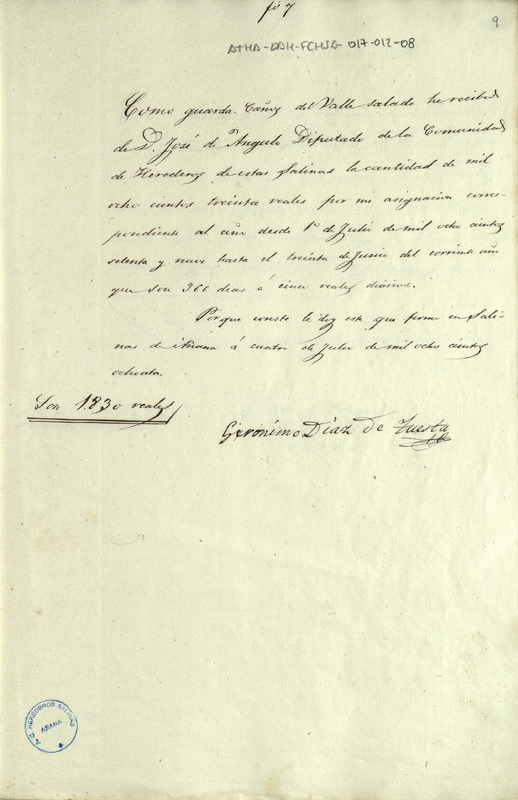 fó 7
9
ATHA-DAH-FCHSA-017-012-08
Como guarda-Caños del Valle salado he recibido
de D. José de Angulo Diputado de la Comunidad
de Herederos de estas Salinas la cantidad de mil
ocho cientos treinta reales por mi asignacion corres-
pondiente al año desde 1º de Julio de mil ocho cientos
setenta y nueve hasta el treinta de Junio del corriente año
que son 366 dias á cinco reales diarios.
Porque conste le doy este que firmo en Sali-
nas de Añana á cuatro de Julio de mil ocho cientos
ochenta.
Son 1.830 reales
Geronimo Diaz de Tuesta
HEREDEROS SALINAS
AÑANA